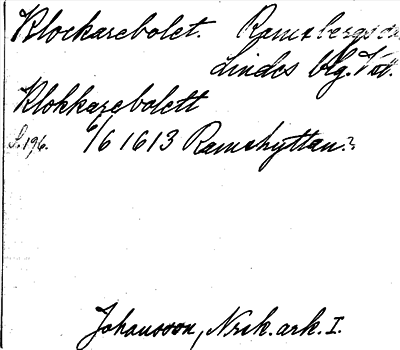 Klockarebolet. Ramsbergs
Lindes blg. Väst.
Klokkarebolett
S. 196. 6/6 1613 Ramshyttan?
Johansson, Norsk. ark. I.